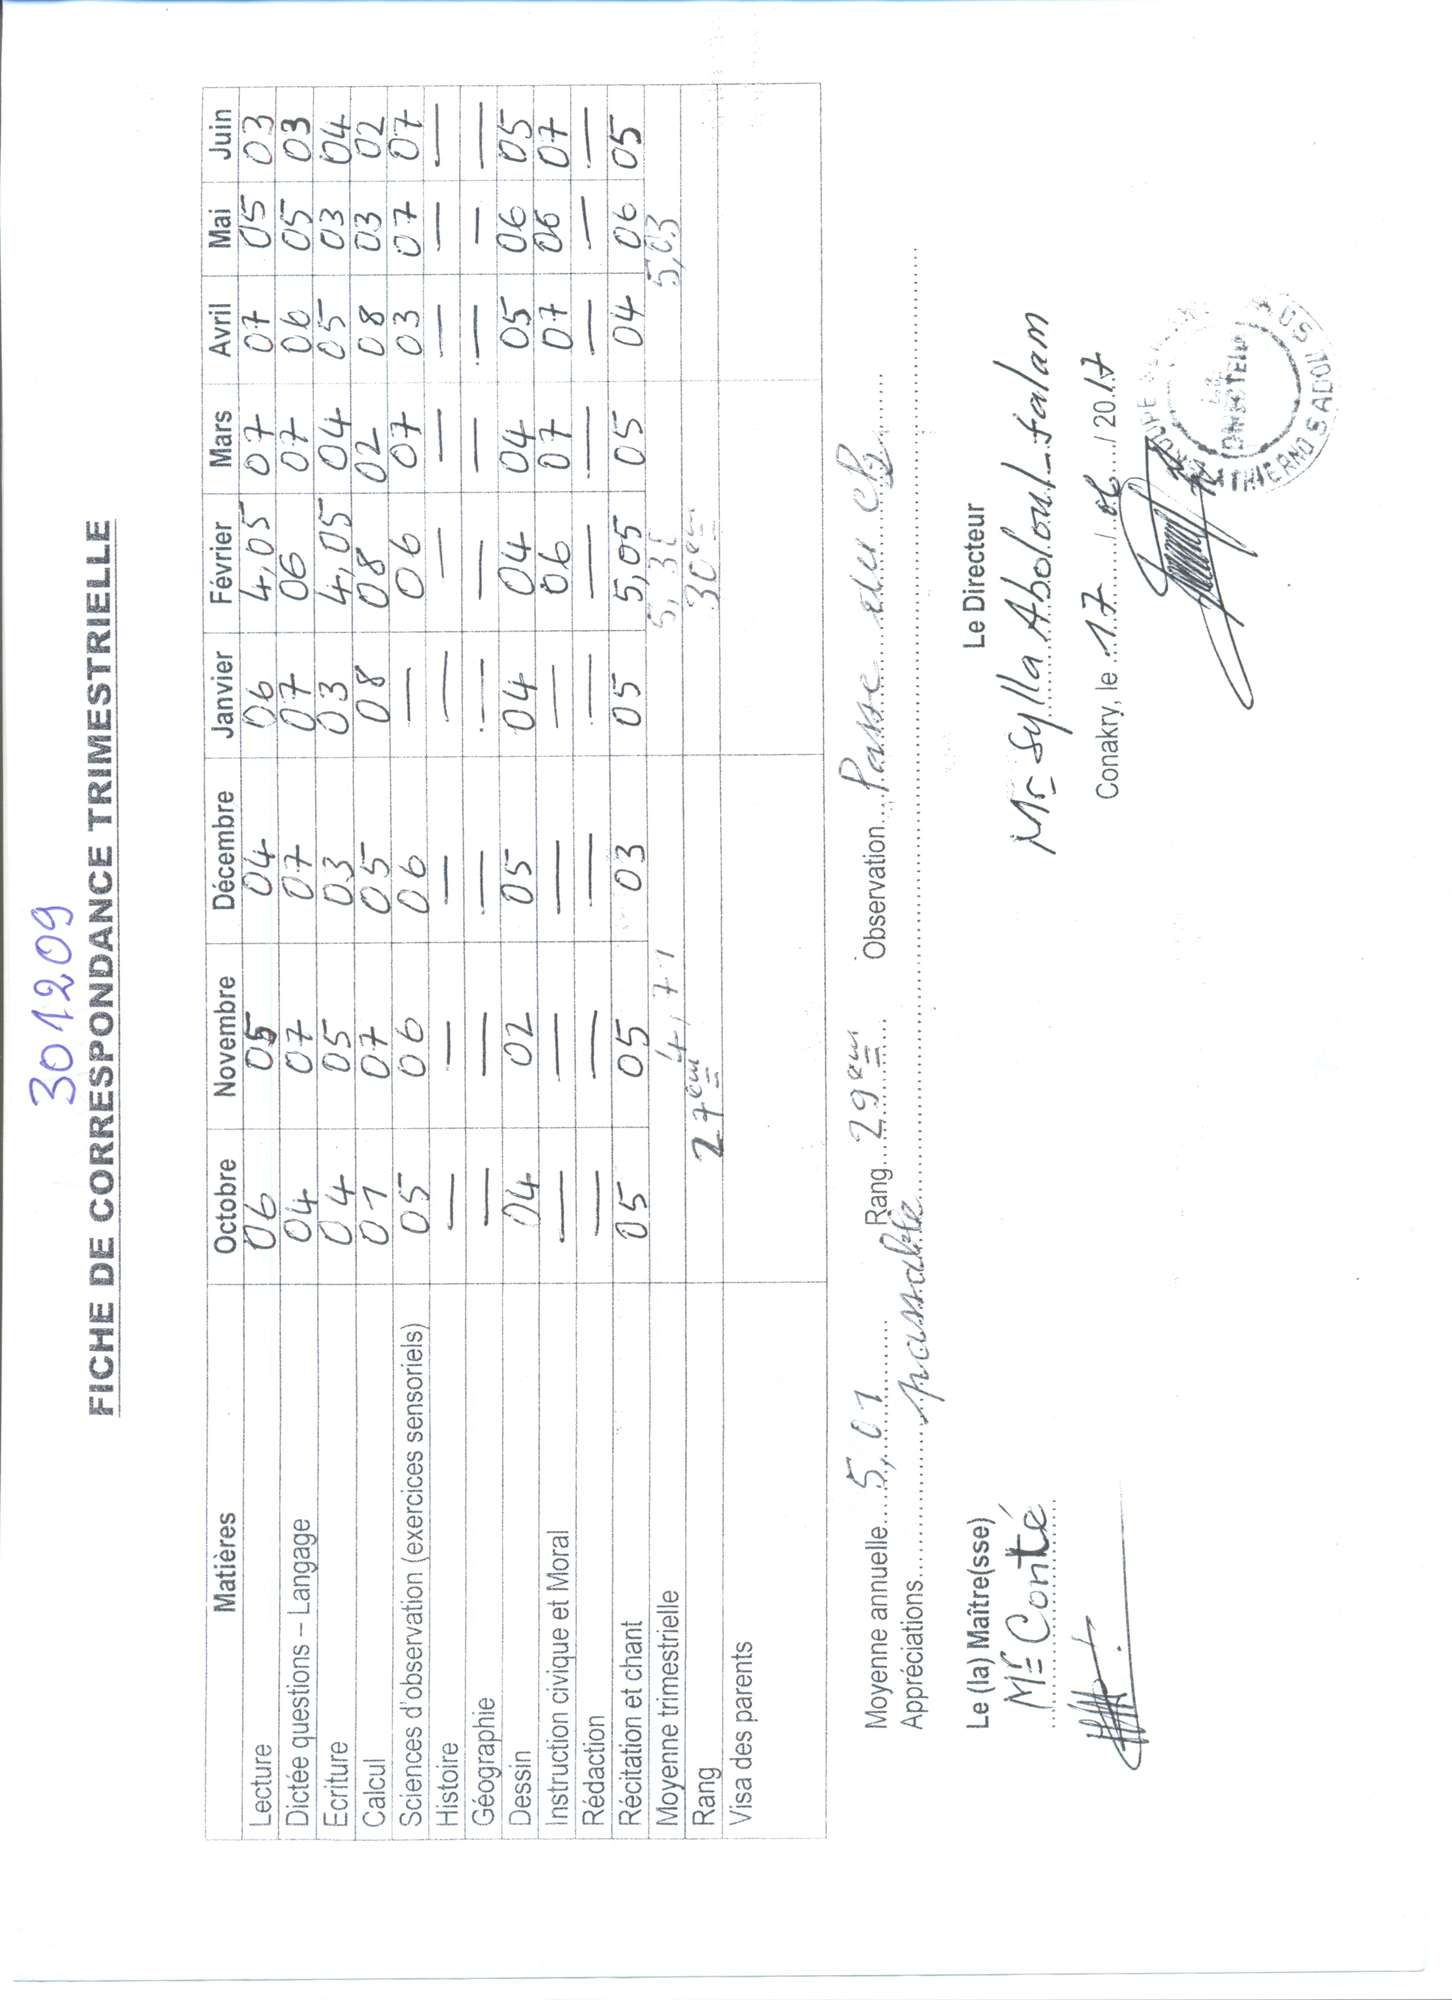 301209
FICHE DE CORRESPONDANCE TRIMESTRIELLE
Matières Octobre Novembre Décembre Janvier Février Mars Avril Mai Juin
Lecture 06 05 04 06 4,05 07 07 05 03
Dictée questions – Langage 04 07 07 07 06 07 06 05 03
Ecriture 04 05 03 03 4,05 04 05 03 04
Calcul 01 07 05 08 08 02 08 03 02
Sciences d'observation (exercices sensoriels) 05 06 06 — 06 07 03 07 07
Histoire — — — — — — — — —
Géographie — — — — — — — — —
Dessin 04 02 05 04 04 04 05 06 05
Instruction civique et Moral — — — — 06 07 07 06 07
Rédaction — — — — — — — — —
Récitation et chant 05 05 03 05 5,05 05 04 06 05
Moyenne trimestrielle 4,71 5,03
Rang 27em 30em
Visa des parents
Moyenne annuelle 5,01 Rang 29em Observation Passe au
Appréciations passable
Le (la) Maître(sse) Le Directeur
Mr Conté Mr Sylla Aboloul-salam
Conakry, le 17 / 06 / 2017
LE DIRECTEUR
THIERNO SADOU